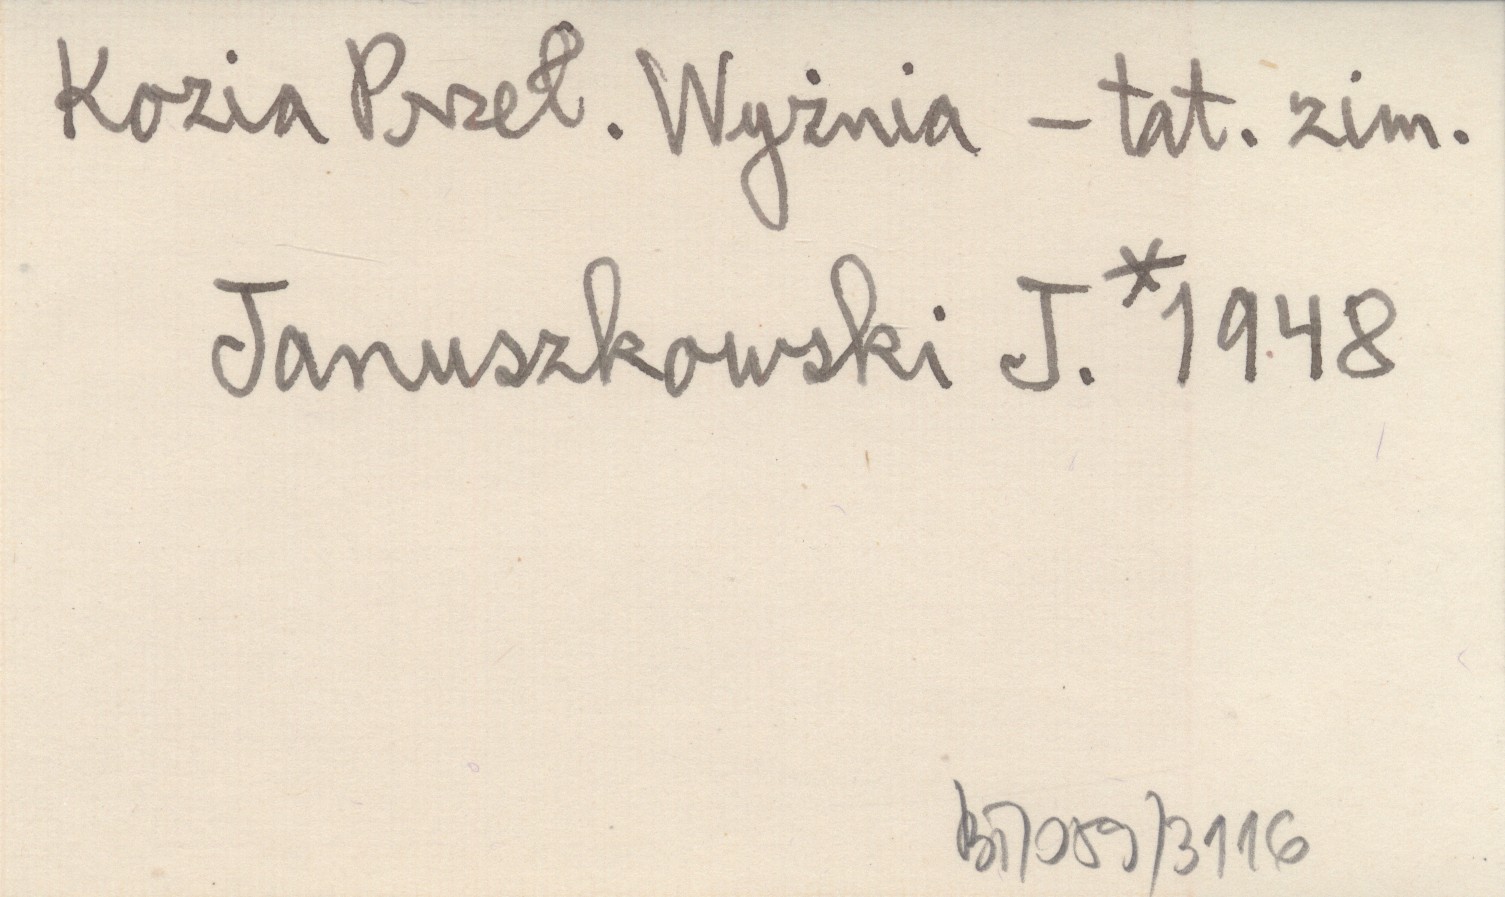 Kozia Przeł. Wyżnia – tat. zim.
Januszkowski J. *1948
BT/089/3116